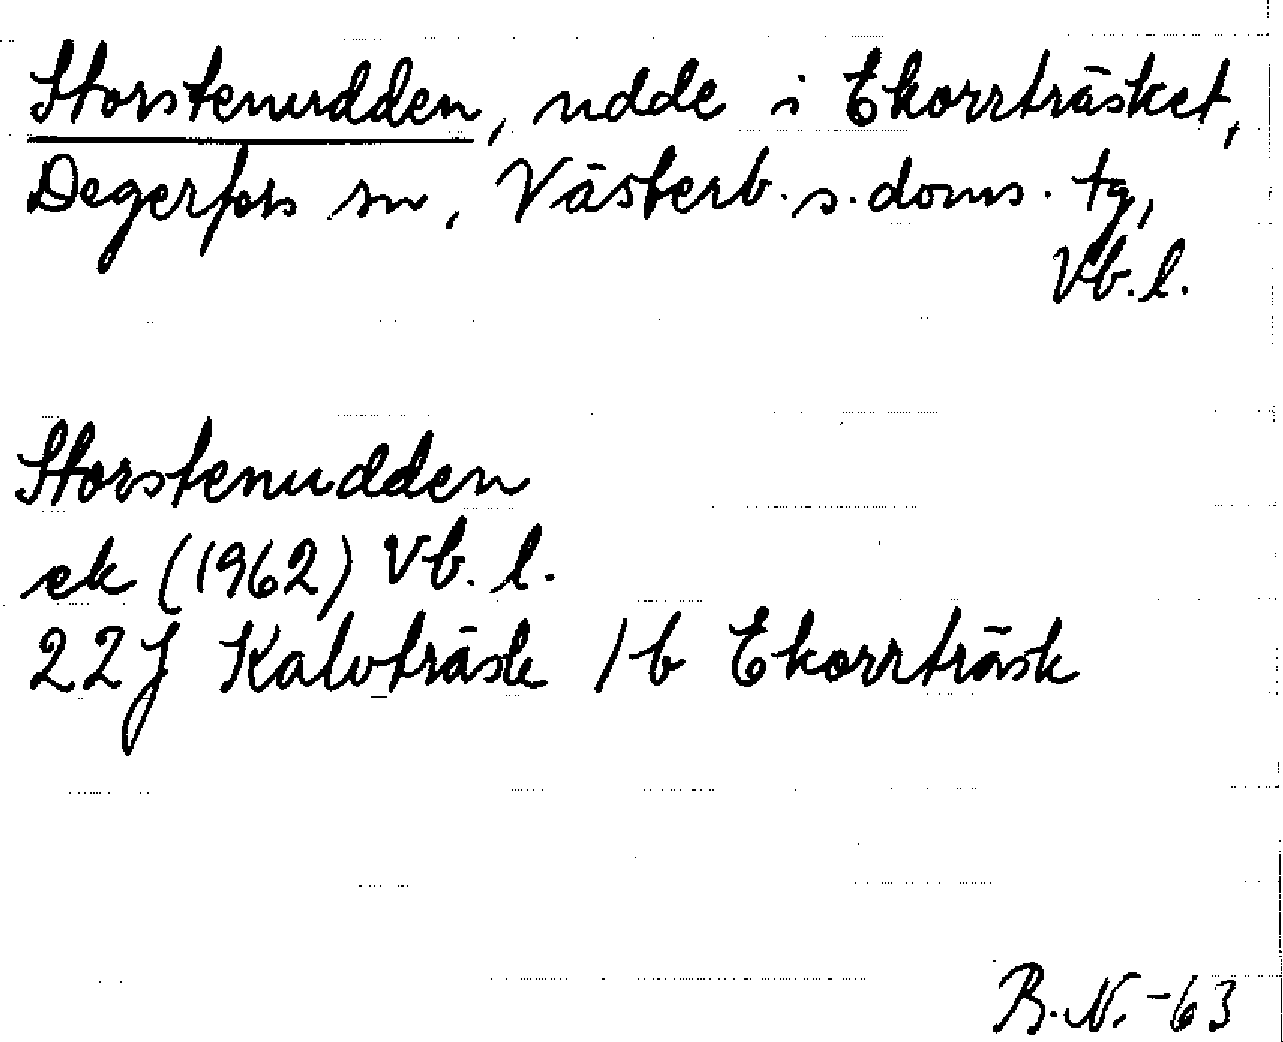 Storstenudden, udde i Ekorrträsket,
Degerfors sn, Västerb. s. doms. tg,
Vb. l.
Storstenudden
ek (1962) Vb. l.
22J Kalvträsk 1b Ekorrträsk
B. N. -63